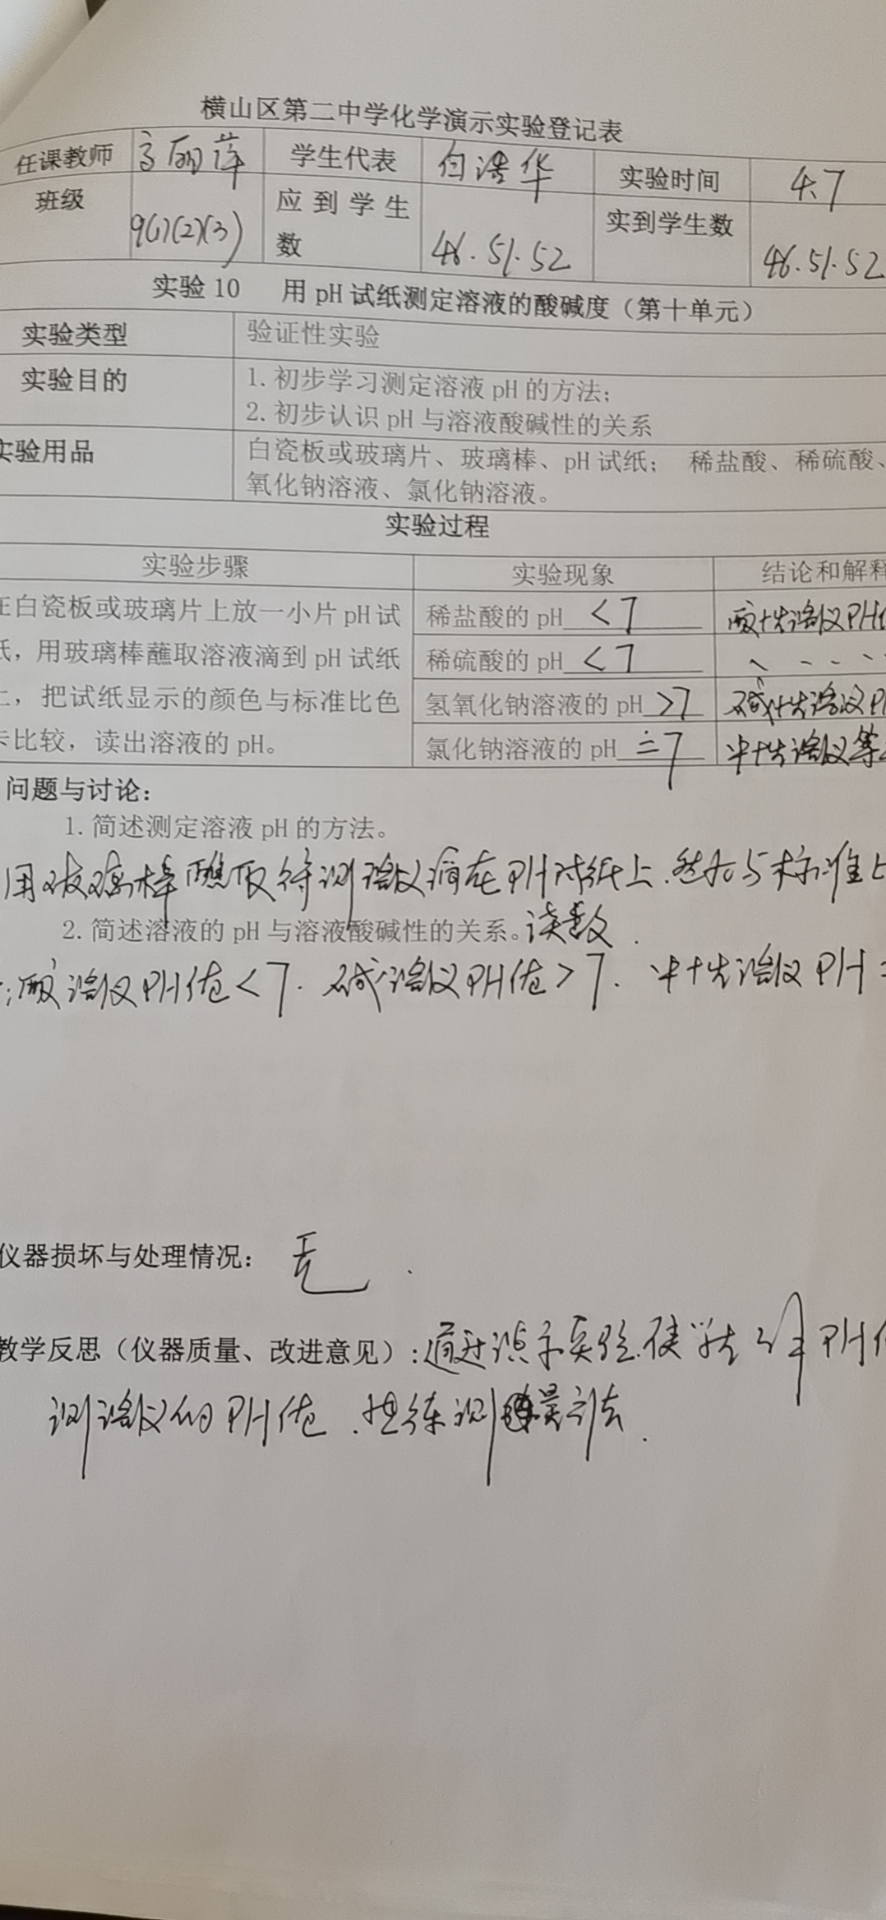 横山区第二中学化学演示实验登记表
任课教师 高丽萍 学生代表 白浩华 实验时间 4.7
班级 9(1)(2)(3) 应到学生数 46.51.52 实到学生数 46.51.52
实验10 用pH试纸测定溶液的酸碱度（第十单元）
实验类型 验证性实验
实验目的 1.初步学习测定溶液pH的方法；
2.初步认识pH与溶液酸碱性的关系
实验用品 白瓷板或玻璃片、玻璃棒、pH试纸； 稀盐酸、稀硫酸、
氧化钠溶液、氯化钠溶液。
实验过程
实验步骤 实验现象 结论和解释
在白瓷板或玻璃片上放一小片pH试 稀盐酸的pH <7 酸性溶液PH
纸，用玻璃棒蘸取溶液滴到pH试纸 稀硫酸的pH <7
上，把试纸显示的颜色与标准比色 氢氧化钠溶液的pH >7 碱性溶液P
卡比较，读出溶液的pH。 氯化钠溶液的pH =7 中性溶液等
问题与讨论：
1.简述测定溶液pH的方法。
用玻璃棒蘸取待测溶液滴在PH试纸上.然后与标准比
2.简述溶液的pH与溶液酸碱性的关系。读数.
:酸溶液PH值<7. 碱溶液PH值>7. 中性溶液PH=
仪器损坏与处理情况： 无.
教学反思（仪器质量、改进意见）：通过演示实验.使学生 PH
测溶液的PH值. 练测量方法.